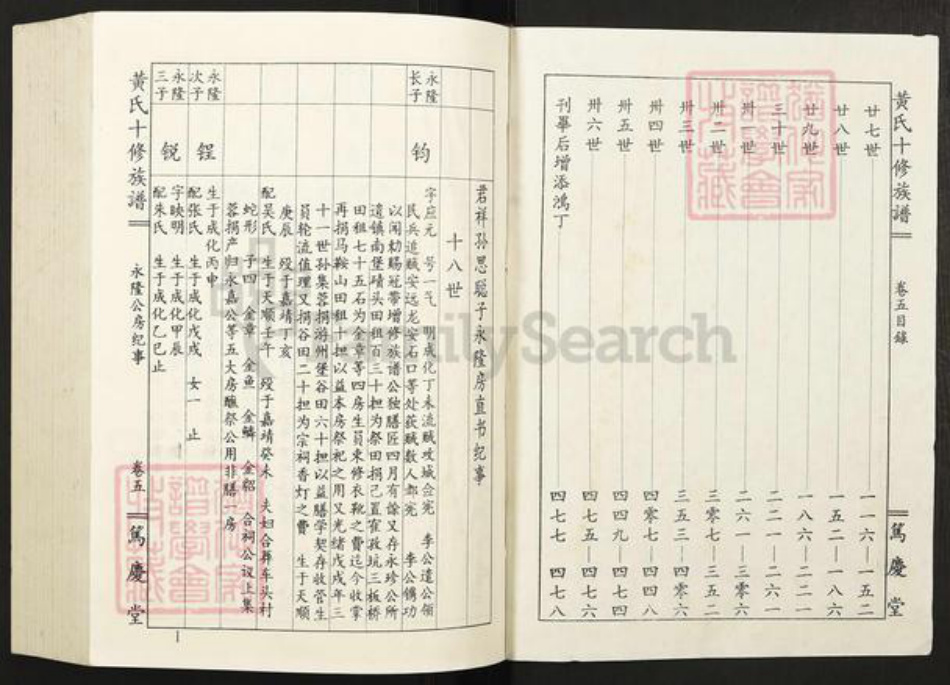 黄氏十修族谱
卷五目録
篤慶堂
廿七世 一一六—一五二
廿八世 一五二—一八六
廿九世 一八六—二二一
三十世 二二一—二六一
卅一世 二六一—三零六
卅二世 三零七—三五二
卅三世 三五三—四零六
卅四世 四零七—四四八
卅五世 四四九—四七四
卅六世 四七五—四七六
刊畢后增添鴻丁 四七七 四七八
君祥孙思聪子永隆房直书纪事
十八世
永隆长子
钧
字应元 号一气 明成化丁未流贼攻城佥宪 李公遣公领
民兵追贼安远龙安石口等处获贼数人都宪 李公儁功
以闻勅赐冠带增修族谱公独膳匠四月有馀又存永珍公所
遗镇南堡碛头田租百三十担为祭田捐己置寉孜坑三板桥
田租七十五石为全章等四房生員束修衣靴之费迄今收掌
再捐马鞍山田租十担以益本房祭祀之用又光绪戊戌年三
十一世孙集蓉捐游州堡谷田六十担以益膳学契存收管生
員轮流值理又捐谷田二十担为宗祠香灯之费 生于天顺
庚辰 殁于嘉靖丁亥
配吴氏 生于天顺壬午 殁于嘉靖癸未 夫妇合葬车头村
蛇形 子四 金章 金鱼 金鳞 金貂 合祠公议上集
蓉捐产归永嘉公等五大房醮祭公用非膳一房
永隆次子
锃
生于成化丙申
配张氏 生于成化戊戌 女一 止
永隆三子
锐
字映明 生于成化甲辰
配朱氏 生于成化乙巳止
黄氏十修族谱
永隆公房纪事
卷五
篤慶堂
1
FamilySearch